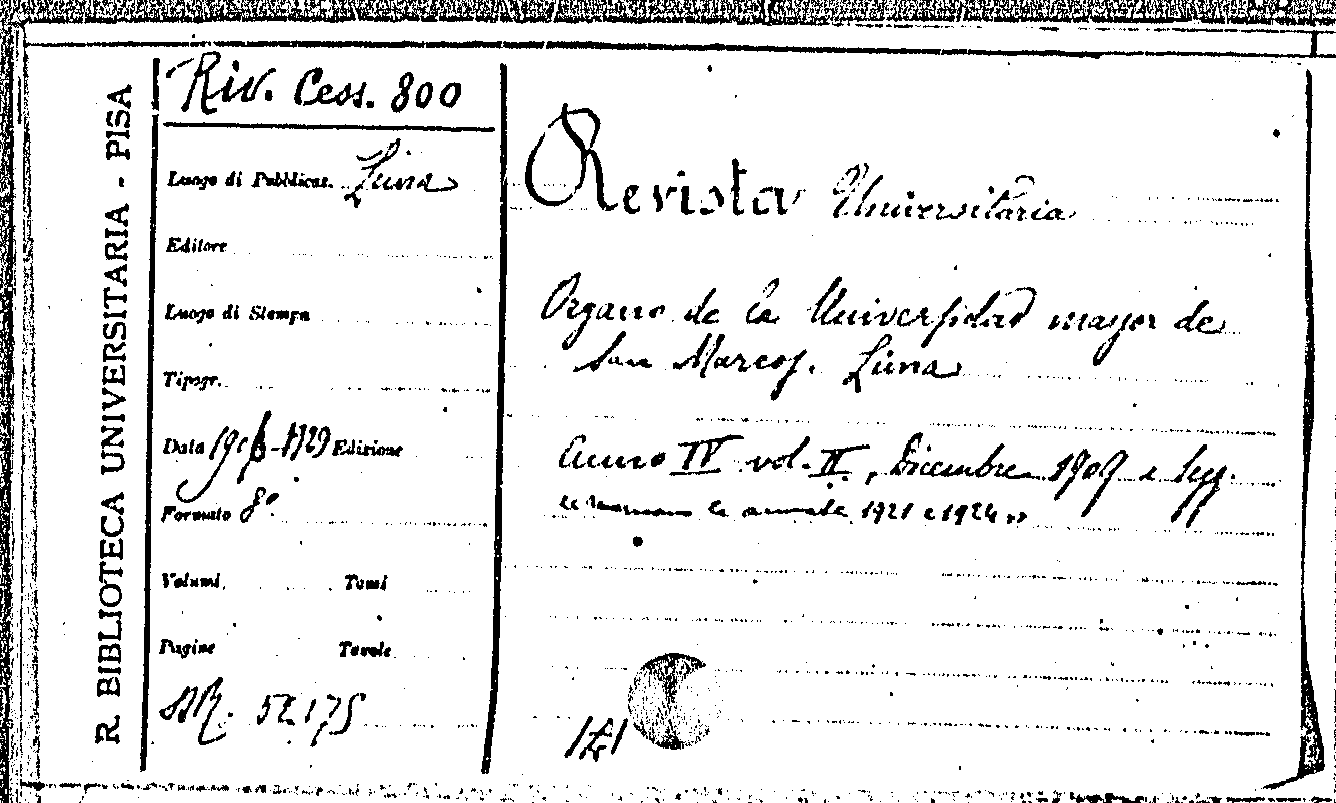 R. BIBLIOTECA UNIVERSITARIA - PISA
Riv. Cess. 800
Luogo di Pubblicaz. Lima
Editore
Luogo di Stampa
Tipogr.
Data -1929 Edizione
Formato 8°
Volumi Tomi
Pagine Tavole
52175
Revista Universitaria
Organo de la Universidad mayor de
San Marcos. Lima
Anno IV vol. II, Dicembre 1909 e segg.
le annate 1921 e 1924